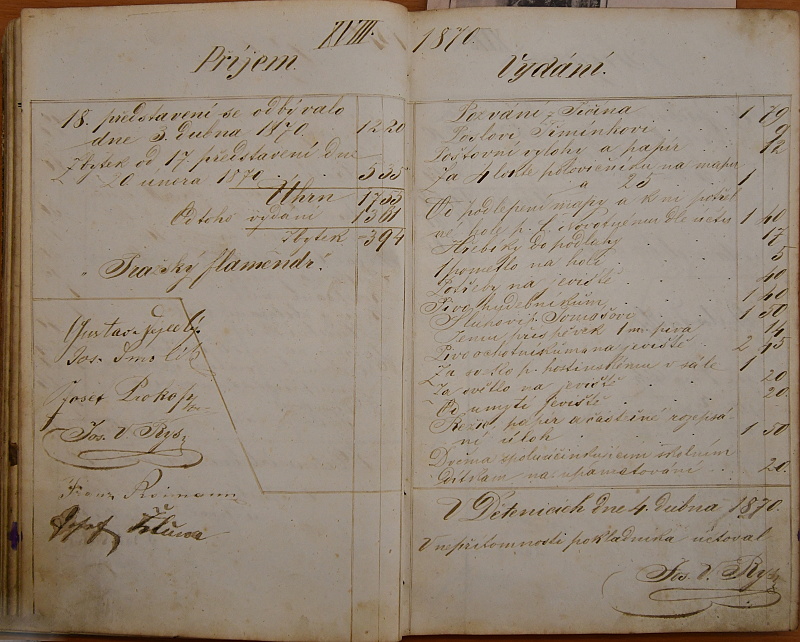 XVIII.
Příjem.
18. představení se odbývalo
dne 3. dubna 1870. 12 20
Zbytek od 17. představení dne
20 února 1870 . . 5 35
Úhrn 17 55
Od toho vydání 13 61
Zbytek 3 94
„Pražský flamendr."
Gustav
Jos.
Josef Prokop
Jos. V. Rys
Franz Reimann
Josef
1870.
Vydání.
Pozvání, Jičína 1 79
Poslovi Šimůnkovi 9
Poštovní výlohy a papír 12
Za 4 lokte polovičníku na mapu
a 25 1
Od podlepení mapy a k ní potřeb
né dle účtu 1 40
Hřebíky do podlahy 17
1 pometlo na hole 5
Potřeby na jeviště 40
Pivo hudebníkům 1 40
Tomášovi 1 50
Témuž příspěvek 1 m. piva 14
Pivo ochotníkům na jeviště 2 45
Za p. hostinskému v sále 1
Za světlo na jeviště 20
Od umytí jeviště 20.
Režie, papír a částečné rozepsá-
ní úloh 1 50
Dvěma spoluúčinkujícím školním
dítkám na upamatování 20.
V Dětenicích dne 4. dubna 1870.
V nepřítomnosti pokladníka účtoval
Jos. V. Rys